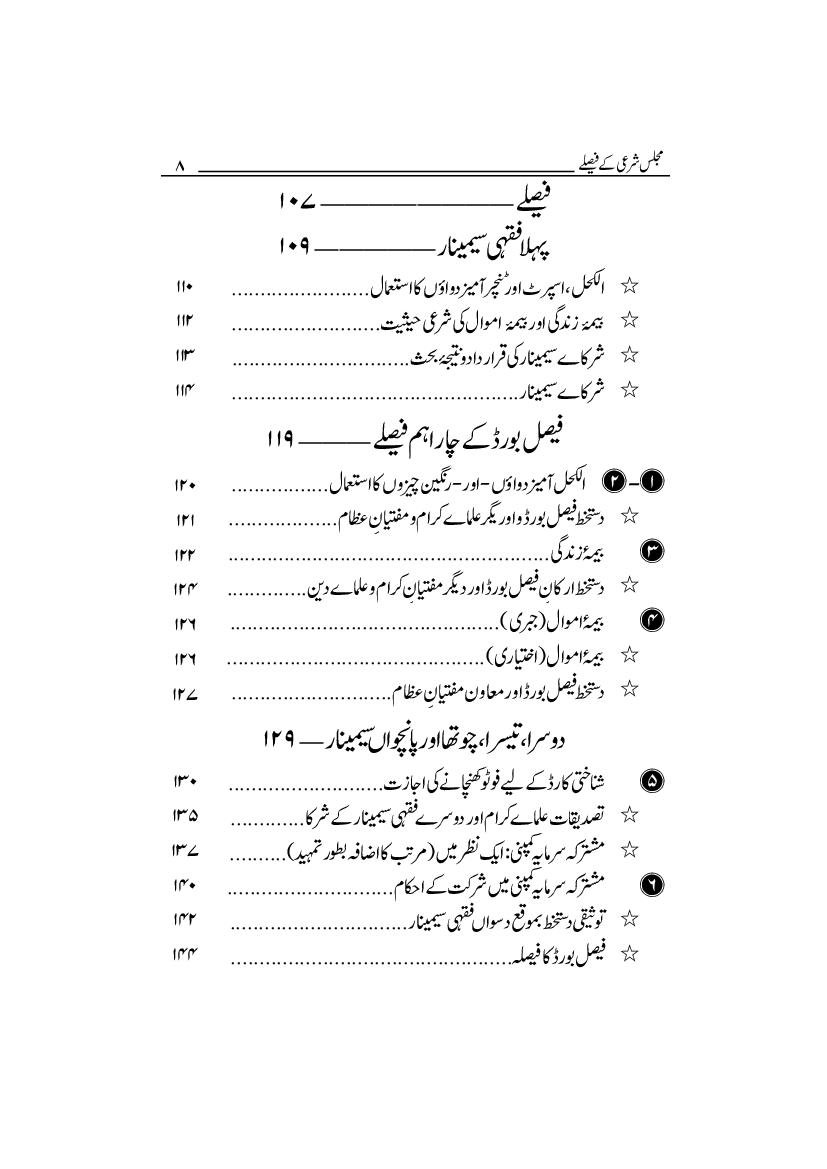 مجلس شرعی کے فیصلے ۸
فیصلے ـــــــــــــــــ ۱۰۷
پہلا فقہی سیمینار ـــــــــــــــــ ۱۰۹
☆ الکحل، اسپرٹ اور ٹنچر آمیز دواؤں کا استعمال........................ ۱۱۰
☆ بیمۂ زندگی اور بیمۂ اموال کی شرعی حیثیت.......................... ۱۱۲
☆ شرکاے سیمینار کی قرارداد و نتیجۂ بحث............................... ۱۱۳
☆ شرکاے سیمینار.................................................. ۱۱۴
فیصل بورڈ کے چار اہم فیصلے ـــــــــ ۱۱۹
❶-❷ الکحل آمیز دواؤں -اور- رنگین چیزوں کا استعمال................. ۱۲۰
☆ دستخط فیصل بورڈ و اور یگر علماے کرام و مفتیانِ عظام................... ۱۲۱
❸ بیمۂ زندگی........................................................ ۱۲۲
☆ دستخط ارکانِ فیصل بورڈ اور دیگر مفتیانِ کرام و علماے دین.............. ۱۲۴
❹ بیمۂ اموال (جبری)............................................... ۱۲۶
☆ بیمۂ اموال (اختیاری)............................................. ۱۲۶
☆ دستخط فیصل بورڈ اور معاون مفتیانِ عظام............................ ۱۲۷
دوسرا، تیسرا، چوتھا اور پانچواں سیمینار ـــ ۱۲۹
❺ شناختی کارڈ کے لیے فوٹو کھنچانے کی اجازت........................... ۱۳۰
☆ تصدیقات علماے کرام اور دوسرے فقہی سیمینار کے شرکا............. ۱۳۵
☆ مشترکہ سرمایہ کمپنی: ایک نظر میں (مرتب کا اضافہ بطور تمہید).......... ۱۳۷
❻ مشترکہ سرمایہ کمپنی میں شرکت کے احکام............................. ۱۴۰
☆ توثیقی دستخط بموقع دسواں فقہی سیمینار............................... ۱۴۲
☆ فیصل بورڈ کا فیصلہ................................................. ۱۴۴